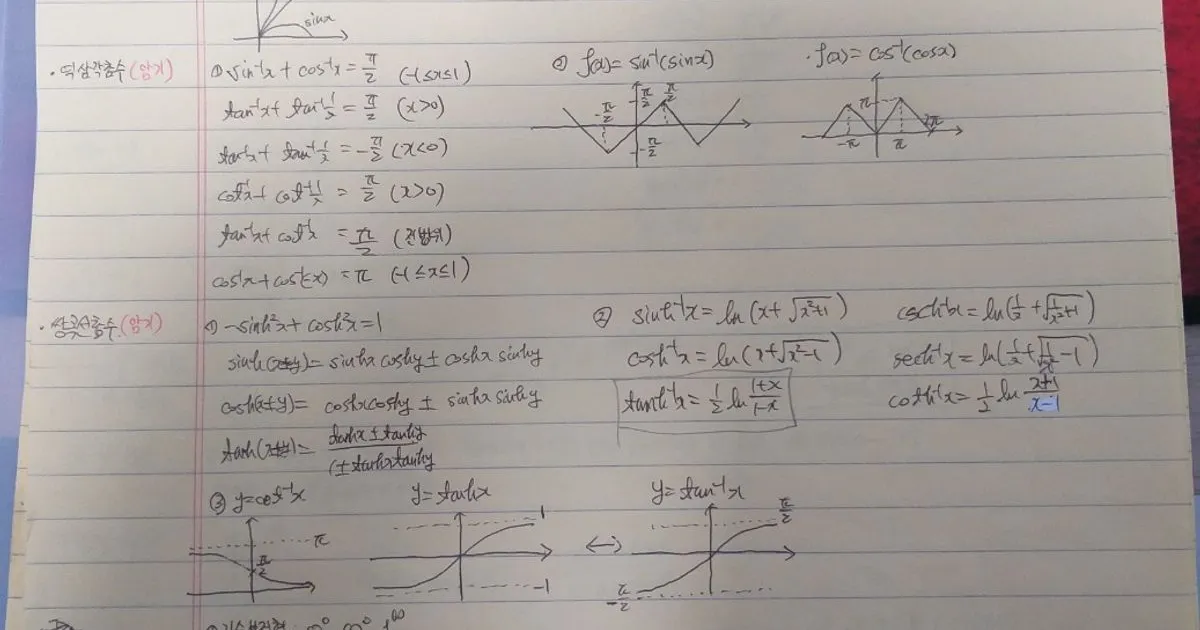 sinx
· 역삼각함수 (암기)
① sin⁻¹x + cos⁻¹x = π/2 (-1≤x≤1)
tan⁻¹x + tan⁻¹ 1/x = π/2 (x>0)
tan⁻¹x + tan⁻¹ 1/x = -π/2 (x<0)
cot⁻¹x + cot⁻¹ 1/x = π/2 (x>0)
tan⁻¹x + cot⁻¹x = π/2 (전범위)
cos⁻¹x + cos⁻¹(-x) = π (-1≤x≤1)
② f(x) = sin⁻¹(sinx)
-π/2 π/2 π/2
-π/2
· f(x) = cos⁻¹(cosx)
π
-π π 2π
· 쌍곡선함수 (암기)
① -sinh²x + cosh²x = 1
sinh(x±y) = sinhx coshy ± coshx sinhy
cosh(x±y) = coshxcoshy ± sinhx sinhy
tanh(x±y) = tanhx ± tanhy / 1 ± tanhxtanhy
② sinh⁻¹x = ln(x + √x²+1)
cosh⁻¹x = ln(x+√x²-1)
tanh⁻¹x = 1/2 ln 1+x/1-x
csch⁻¹x = ln(1/x + √1/x²+1)
sech⁻¹x = ln(1/x + √1/x²-1)
coth⁻¹x = 1/2 ln x+1/x-1
③ y=cot⁻¹x
π
π/2
y=tanhx
1
-1
↔
y=tan⁻¹x
π/2
-π/2